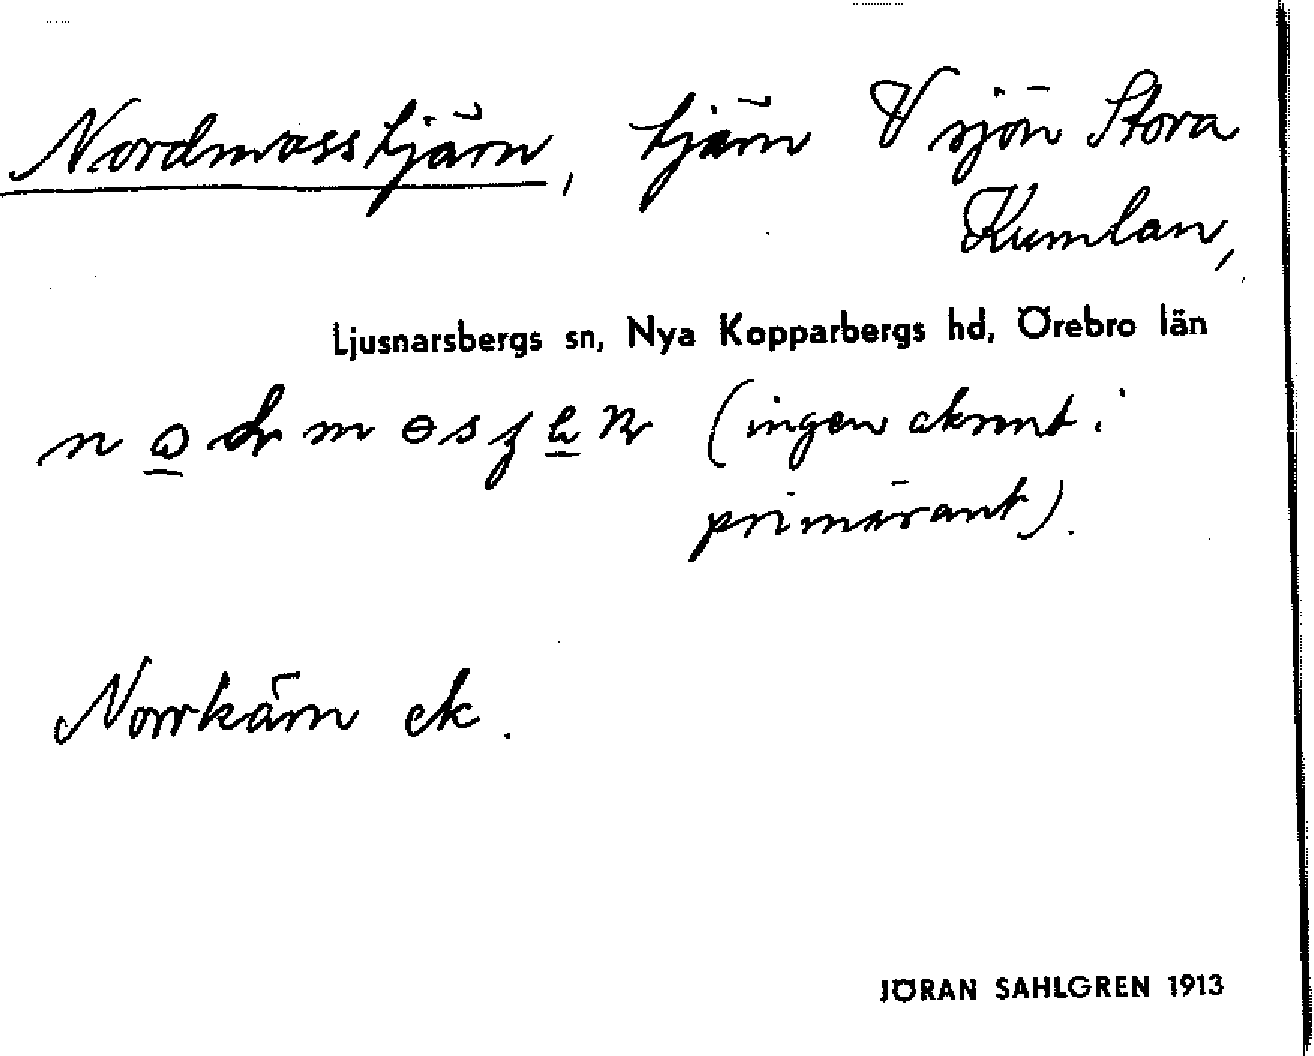 Nordmosstjärn, tjärn V sjön Stora
Kumlan,
Ljusnarsbergs sn, Nya Kopparbergs hd, Örebro län
(ingen aksent i
primärant).
Norrkärn ek.
JÖRAN SAHLGREN 1913